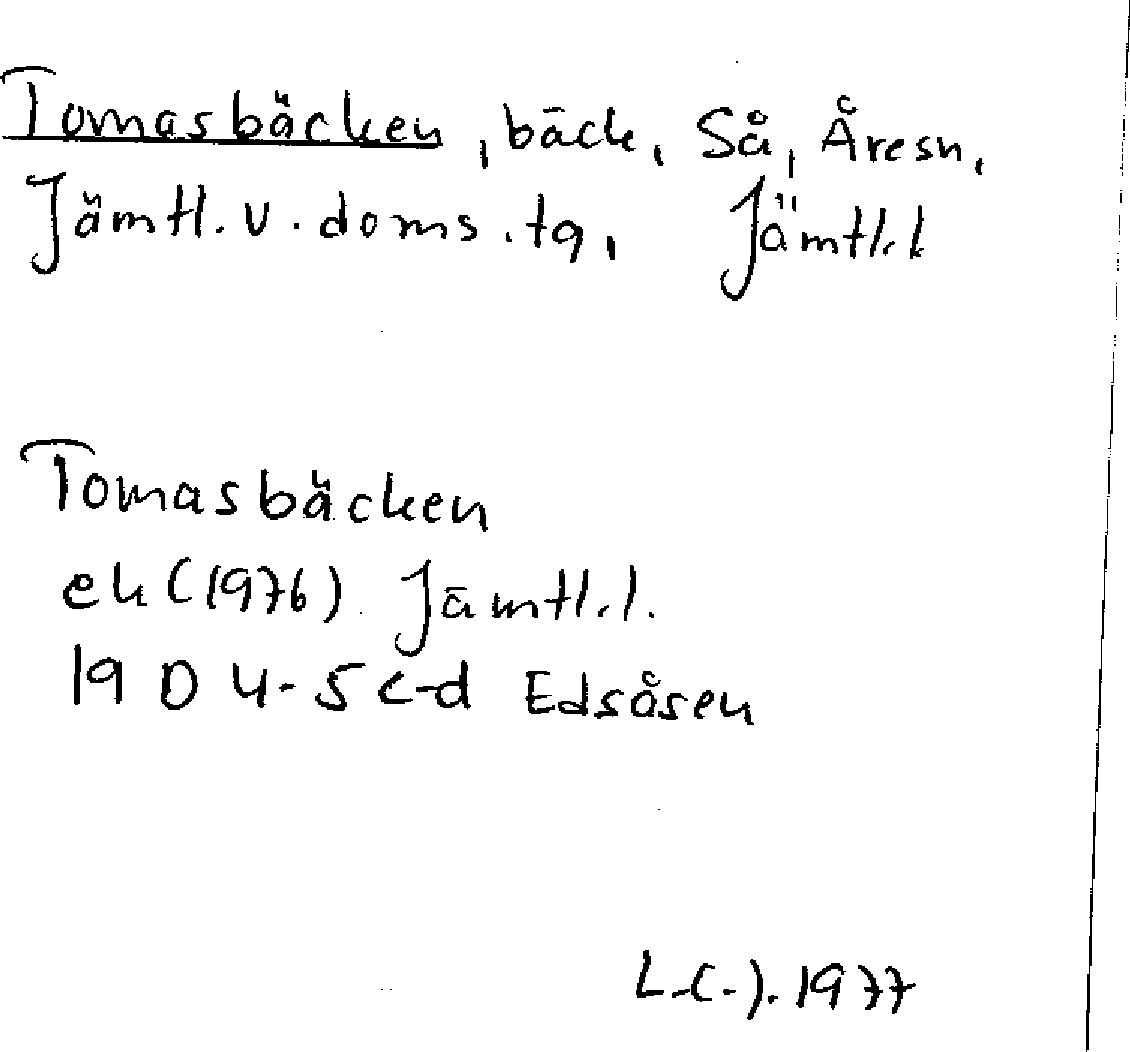 Tomasbäcken, bäck, Så, Åresn,
Jämtl.v.doms.tg, Jämtl.l
Tomasbäcken
ek (1976). Jämtl.l.
19 D 4-5 c-d Edsåsen
L-C-J. 1977